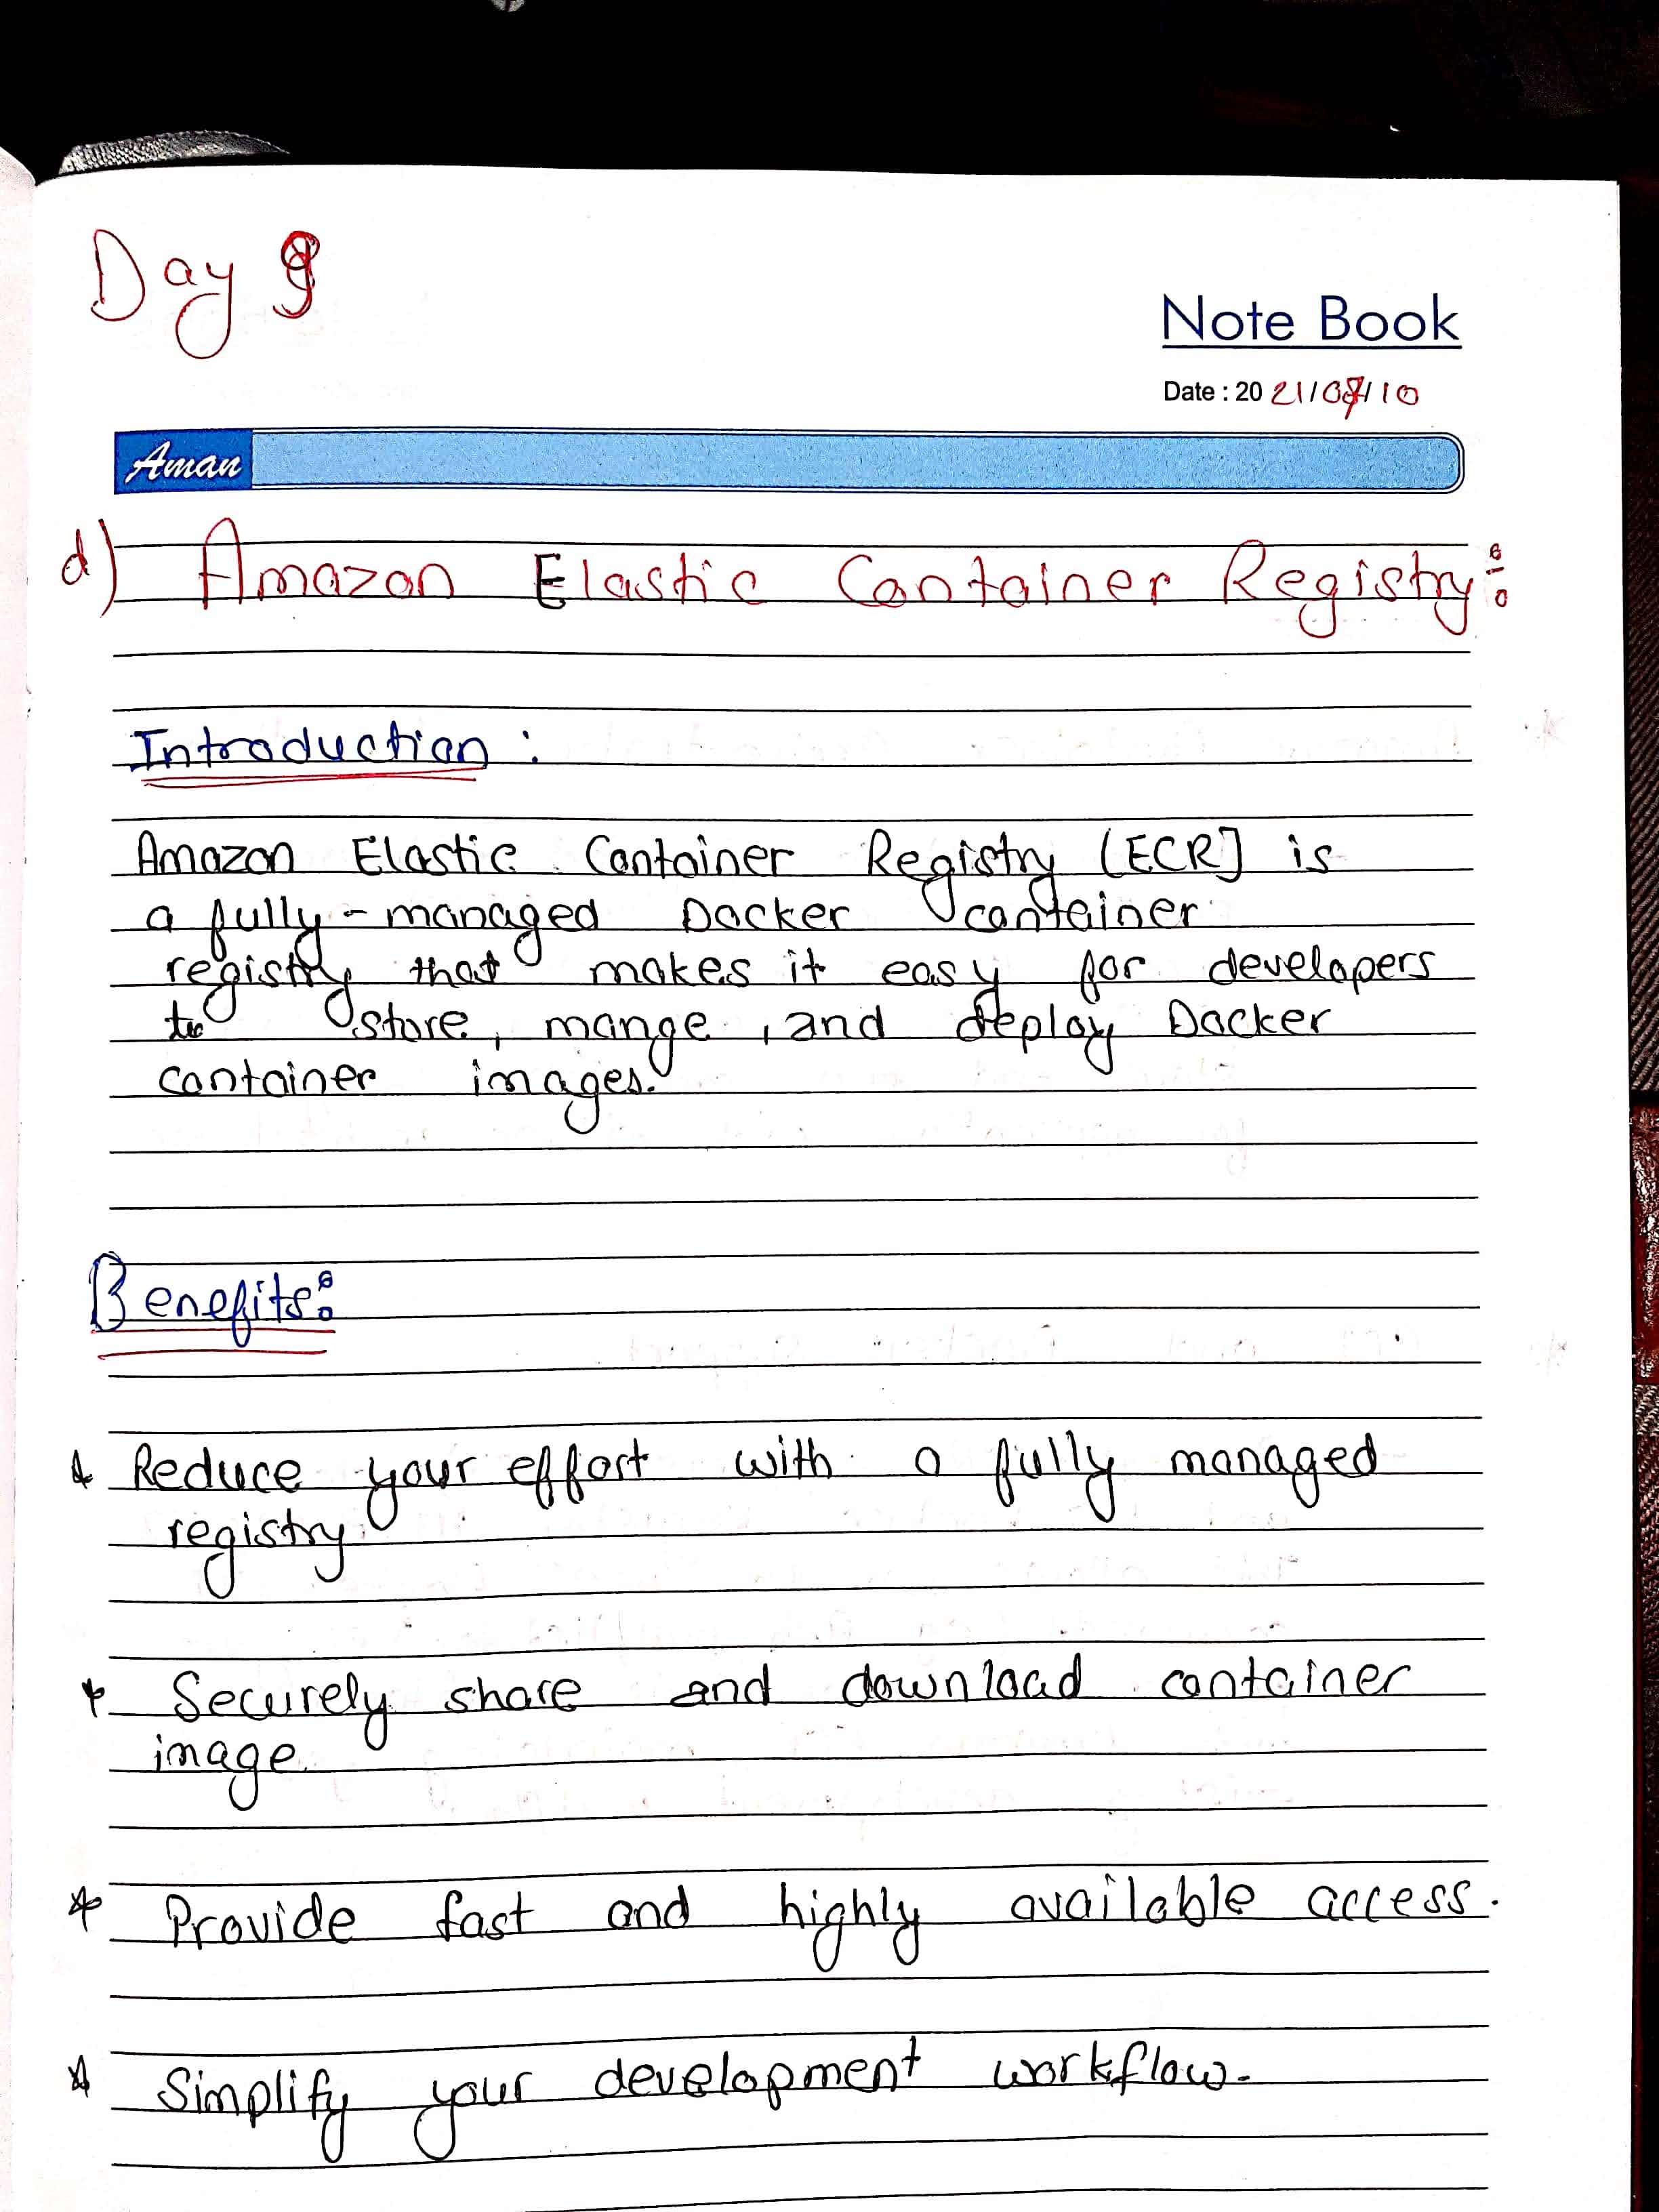 Day 9
Note Book
Date : 20 21/07/10
Aman
d) Amazon Elastic Container Registry:
Introduction :
Amazon Elastic Container Registry (ECR] is
a fully-managed Docker container
registry that makes it easy for developers
to store, mange, and deploy Docker
container images.
Benefits:
* Reduce your effort with a fully managed
registry
* Securely share and download container
image
* Provide fast and highly available access.
* Simplify your development workflow.